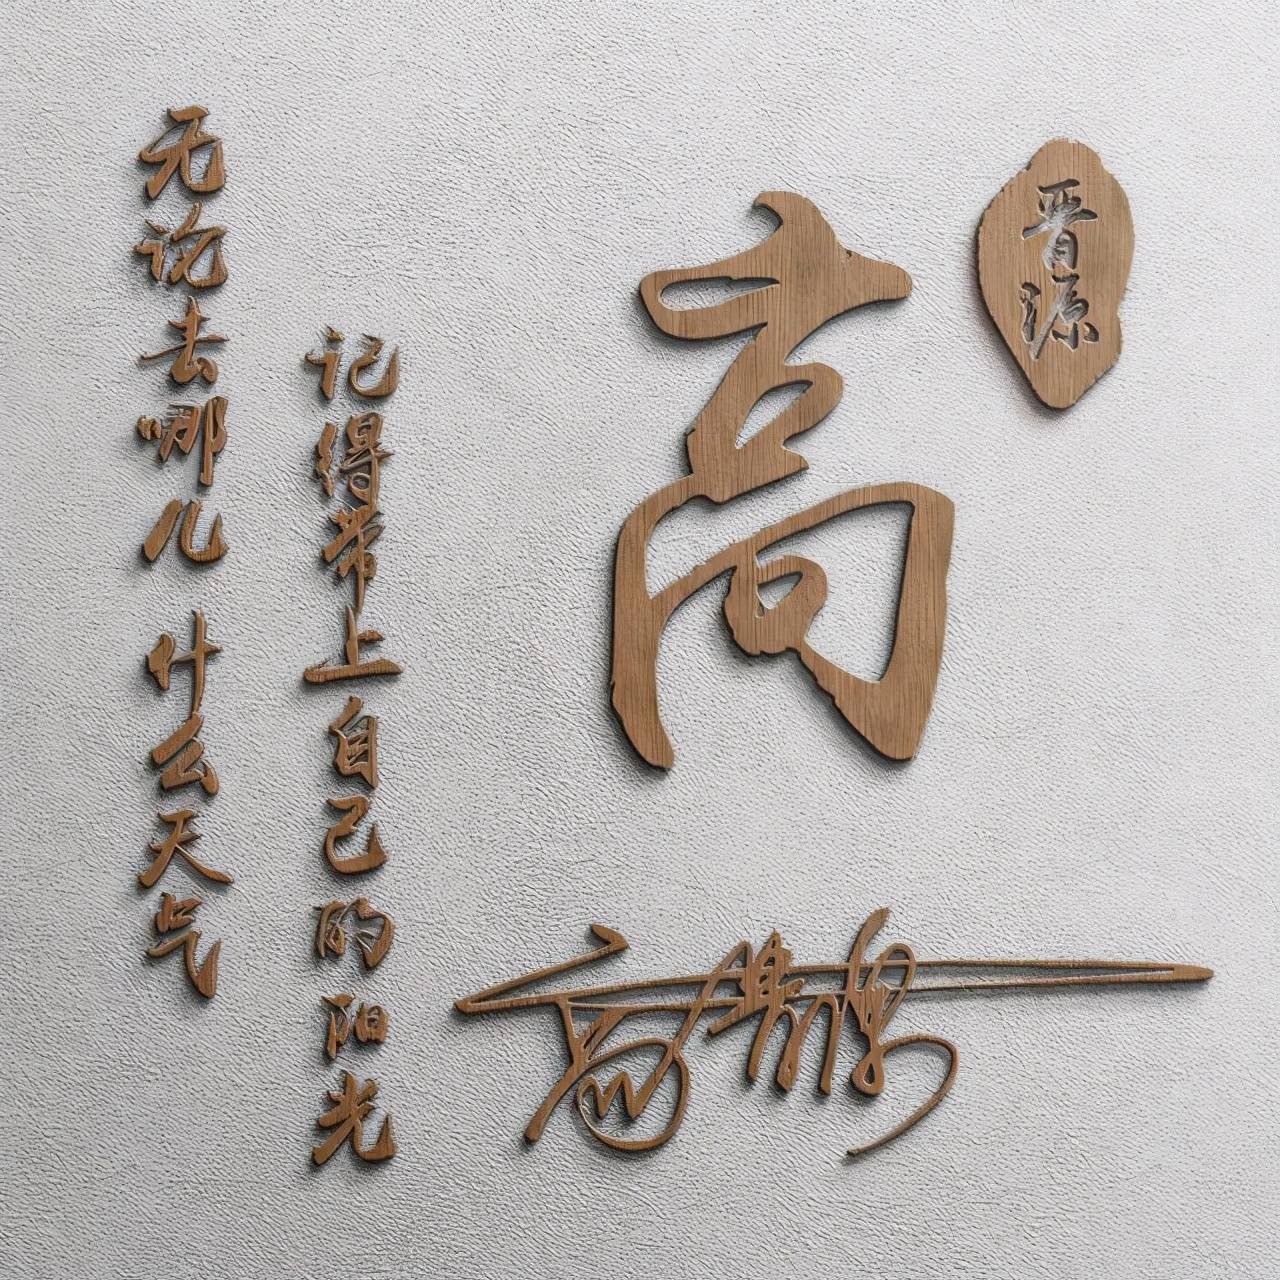 无论去哪儿 什么天气
记得带上自己的阳光
高
晋源